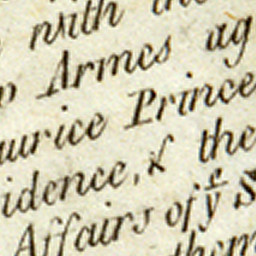 with the
Armes ag
aurice Prince
idence, & the
Affairs of yͤ S
them